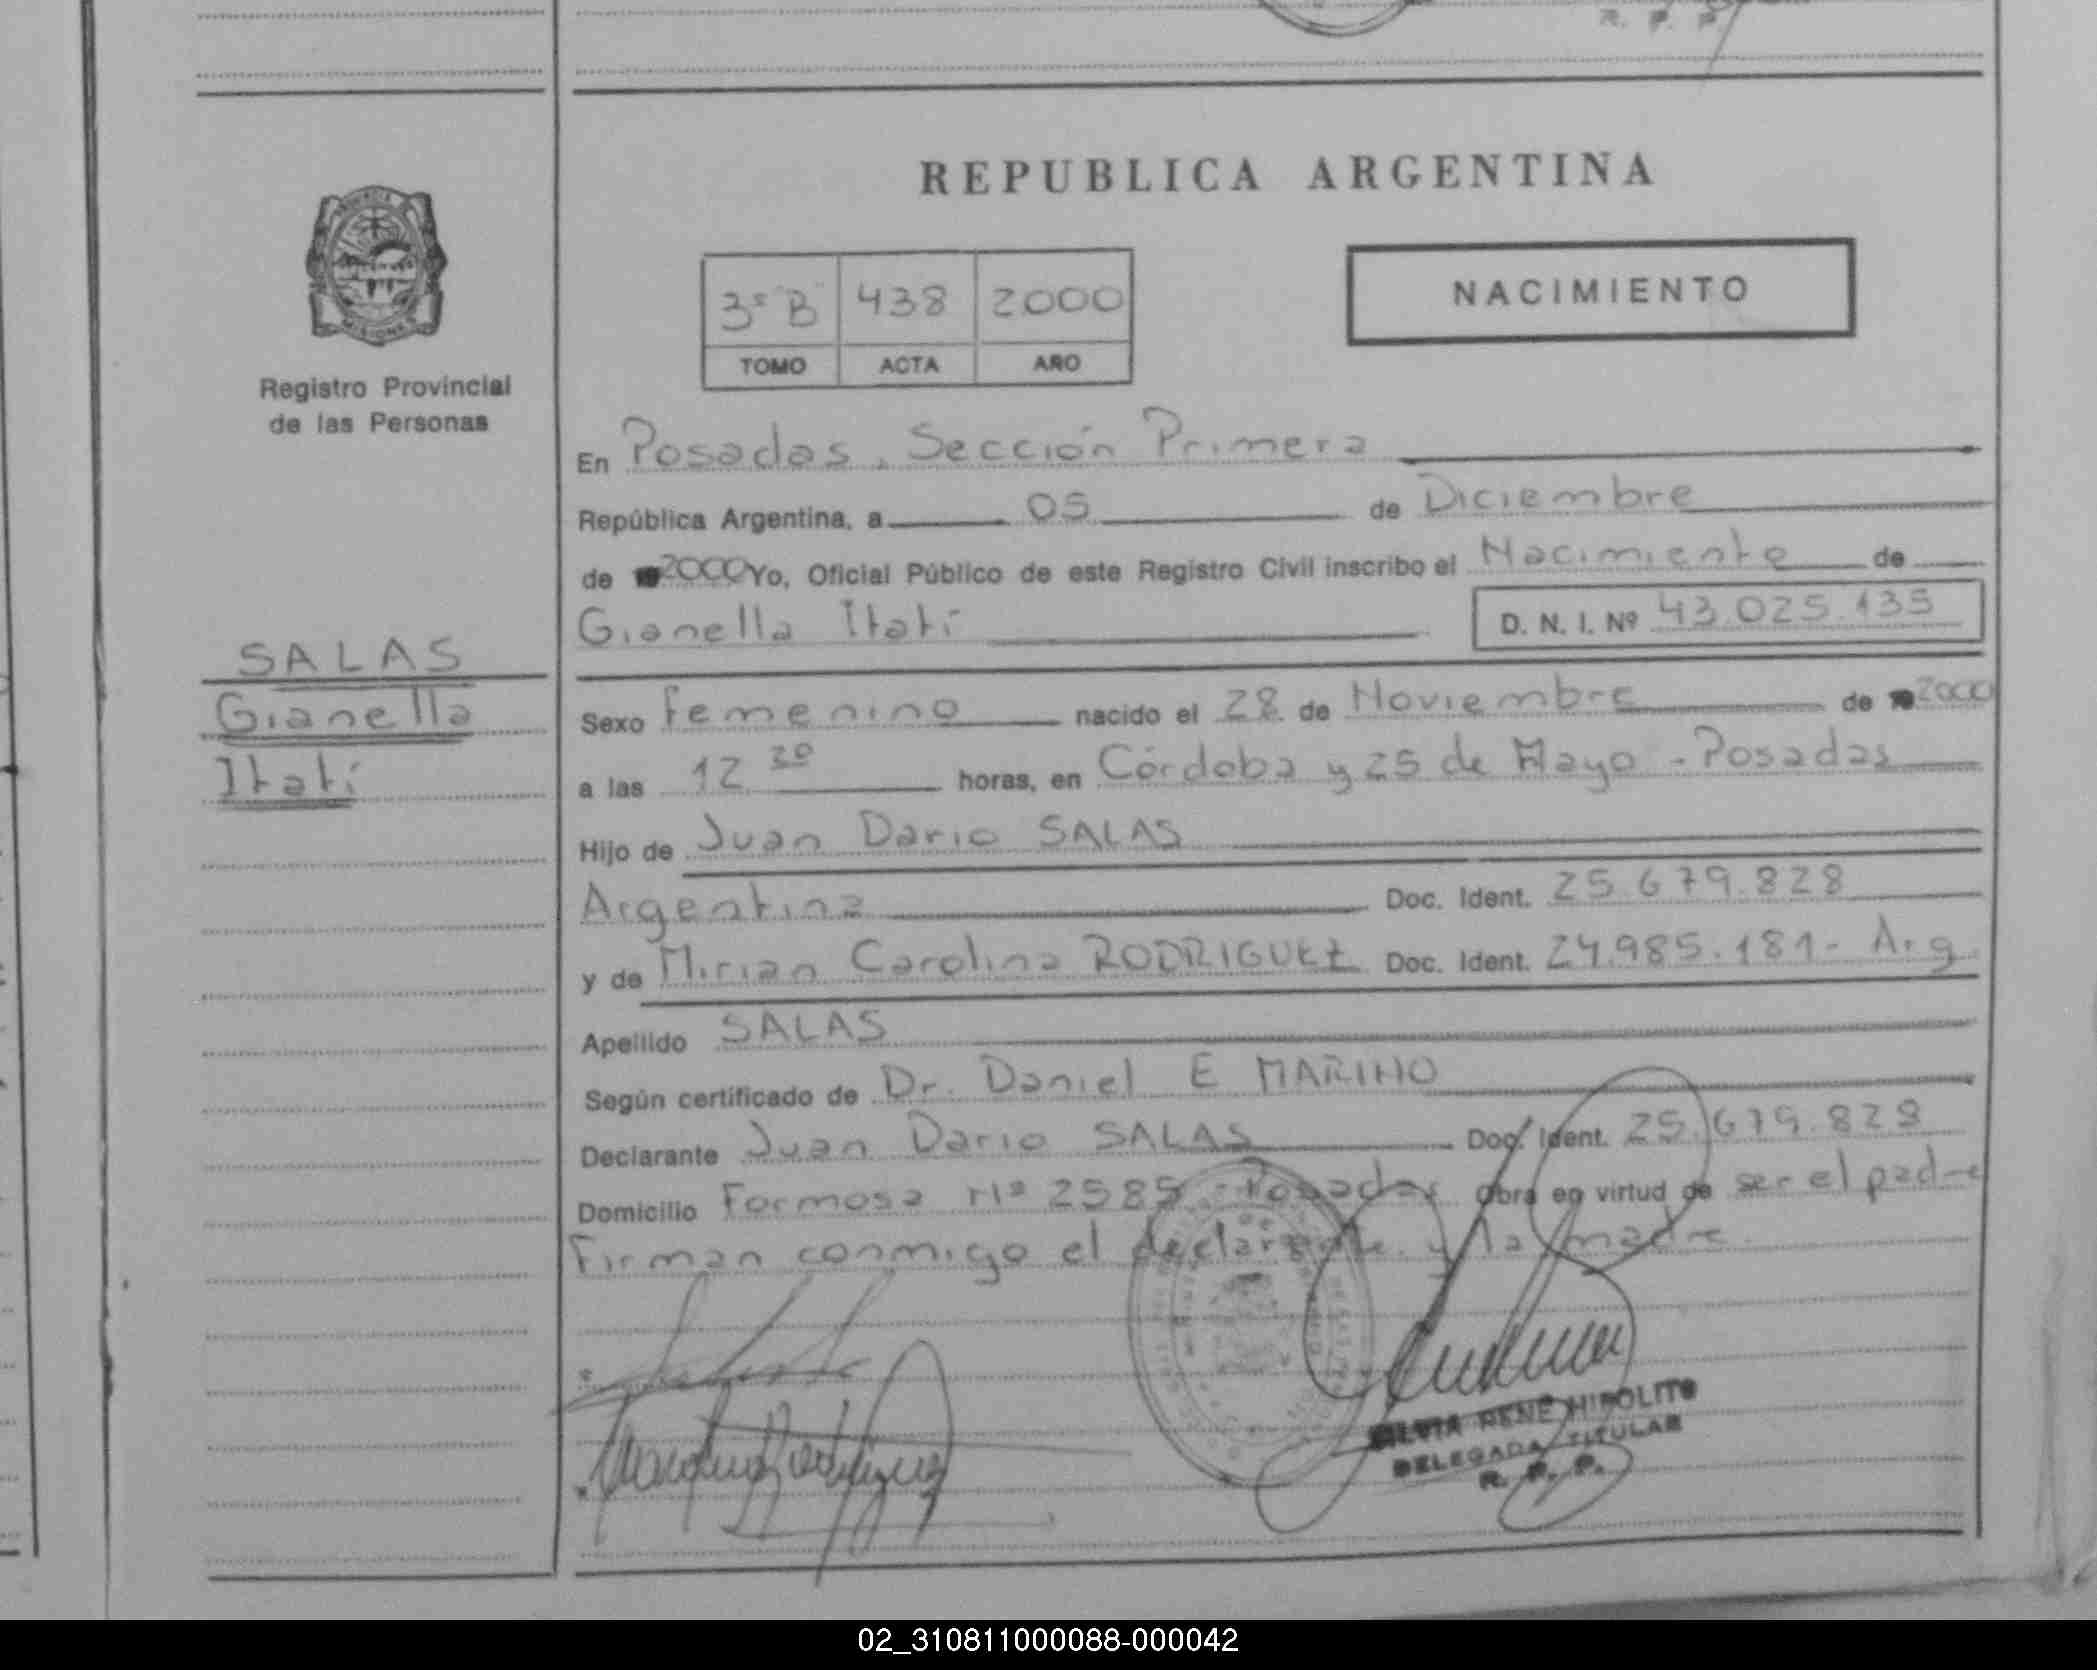 R. P. P.
REPUBLICA ARGENTINA
PROVINCIA
MISIONES
Registro Provincial
de las Personas
3º "B" 438 2000
TOMO ACTA AÑO
NACIMIENTO
En Posadas, Sección Primera
República Argentina, a 05 de Diciembre
de 2000 Yo, Oficial Público de este Registro Civil inscribo el Nacimiento de
Gianella Itatí D. N. I. Nº 43.025.135
SALAS
Gianella
Itatí
Sexo Femenino nacido el 28 de Noviembre de 2000
a las 12 30 horas, en Córdoba y 25 de Mayo - Posadas
Hijo de Juan Dario SALAS
Argentina Doc. Ident. 25.679.828
y de Mirian Carolina RODRIGUEZ Doc. Ident. 24.985.181 - Arg.
Apellido SALAS
Según certificado de Dr. Daniel E MARINO
Declarante Juan Dario SALAS Doc. Ident. 25.679.828
Domicilio Formosa Nº 2585 - Posadas Obra en virtud de ser el padre
Firman conmigo el declarante y la madre.
SILVIA RENE HIPOLITO
DELEGADA TITULAR
R. P. P.
02_310811000088-000042